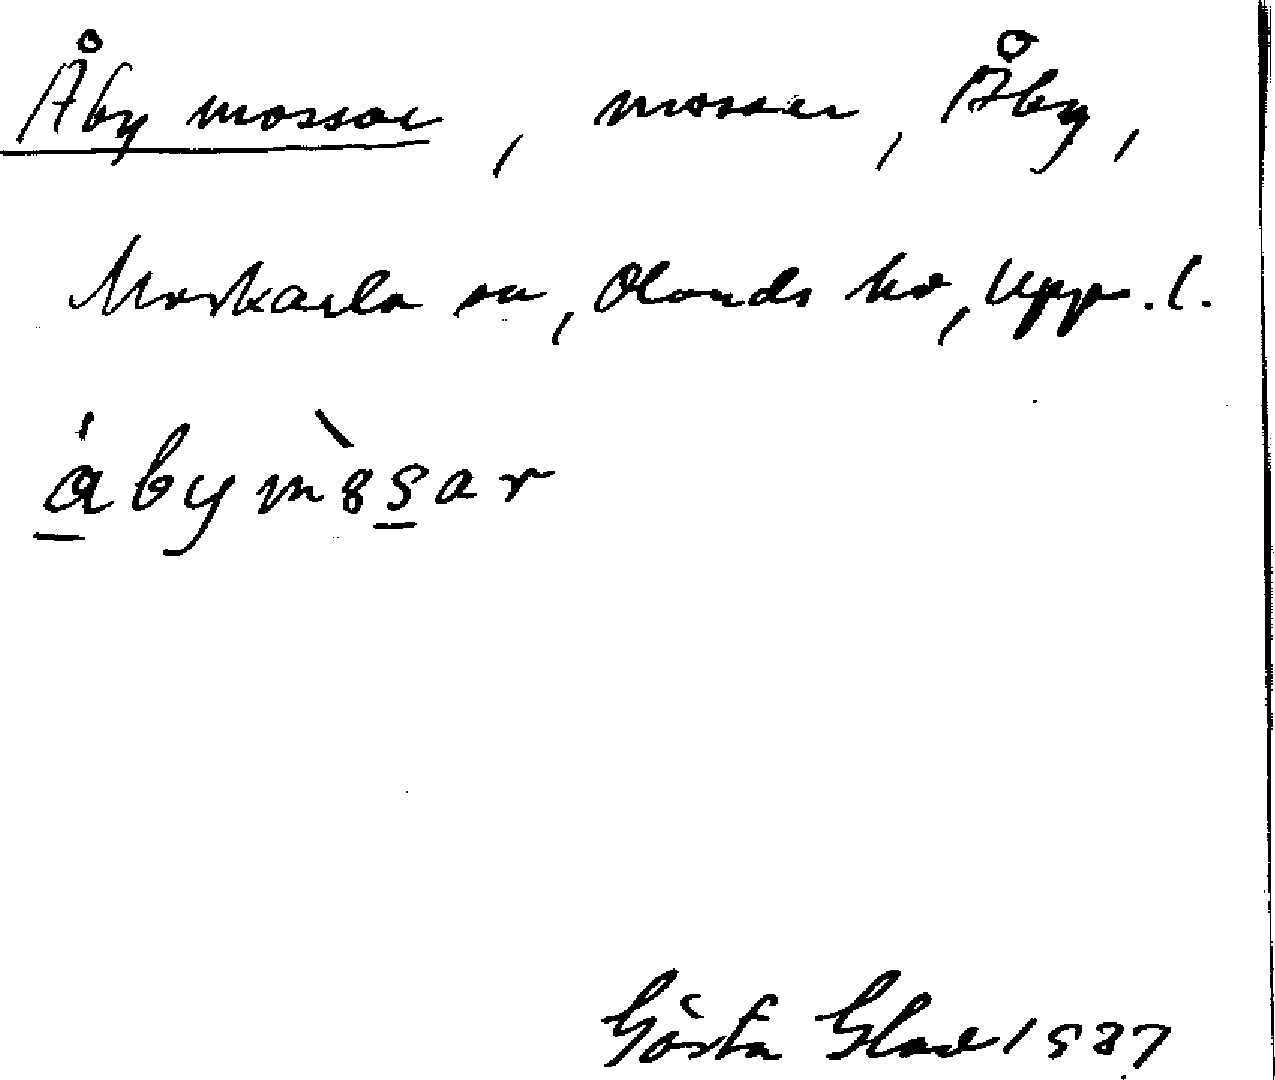 Åby mossar, mossar, Åby,
Morkarla sn, Olands hd, Uppl.
åbyms̀sar
Gösta Glad 1937